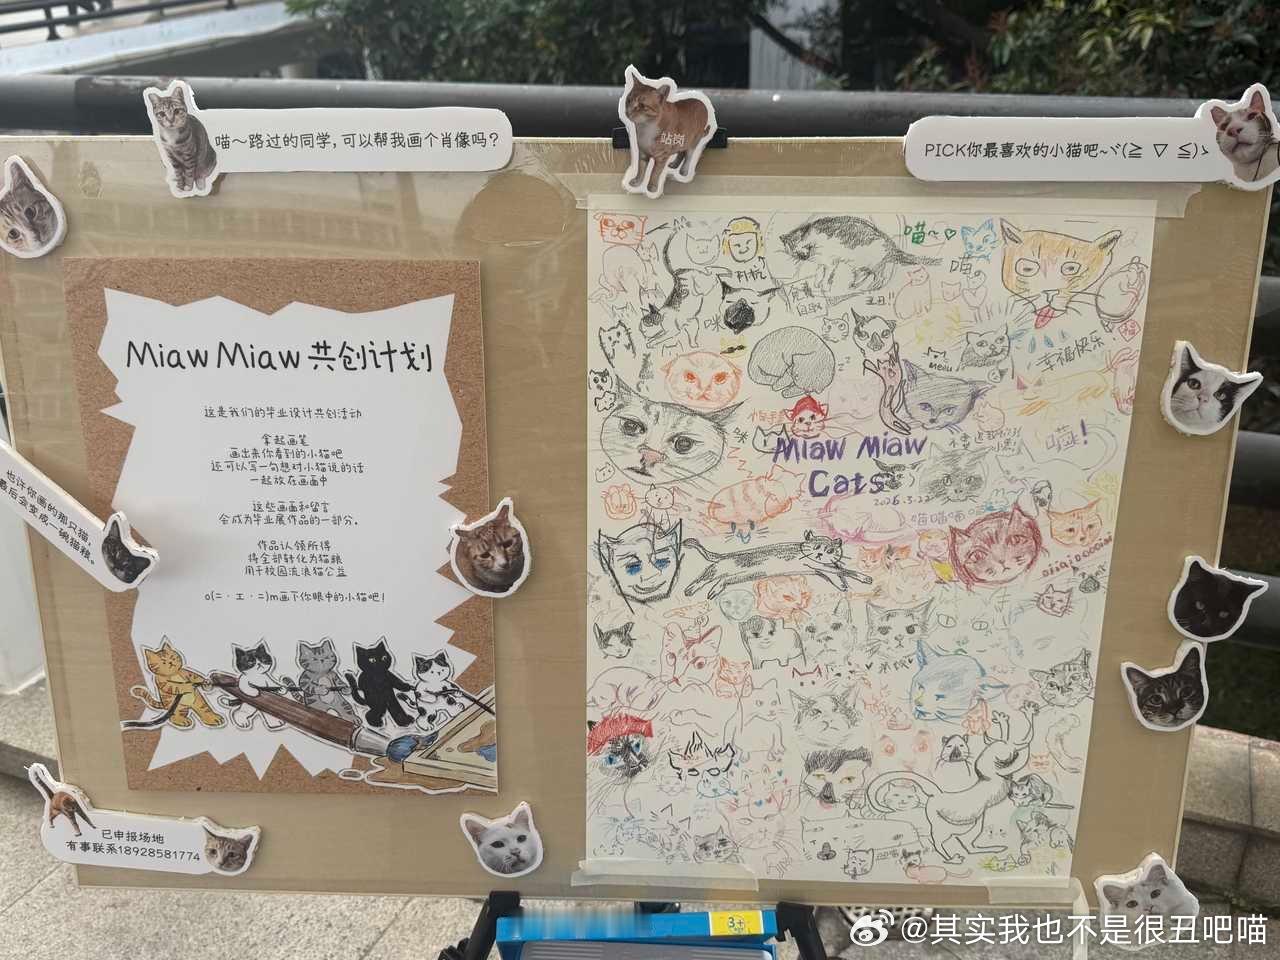 喵～路过的同学,可以帮我画个肖像吗？
站岗
PICK你最喜欢的小猫吧~ヾ(≧ ▽ ≦)ゝ
Miaw Miaw 共创计划
这是我们的毕业设计共创活动
拿起画笔
画出来你看到的小猫吧
还可以写一句想对小猫说的话
一起放在画面中
这些画面和留言
会成为毕业展作品的一部分。
作品认领所得
将全部转化为猫粮
用于校园流浪猫公益
o(=·工·=)m画下你眼中的小猫吧！
也许你画的那只猫，
最后会变成一碗猫粮。
已申报场地
有事联系18928581774
喵～
喵
咪
丑丑!!
幸福快乐
福
meiu
咪
喵!
Miaw Miaw
Cats
2026.3.22
喵喵喵
3+
@其实我也不是很丑吧喵